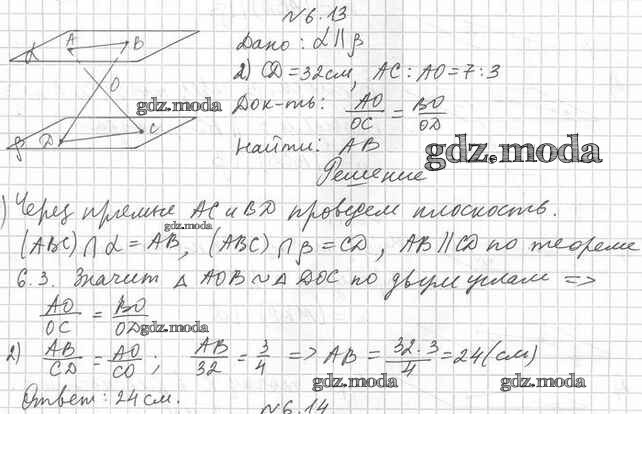 №6.13
Дано: α || β
2) CD = 32 см, AC : AO = 7 : 3
Док-ть: AO/OC = BO/OD
Найти: AB
Решение
A B
α
O
gdz.moda
D C
β
gdz.moda
) Через прямые AC и BD проведем плоскость.
gdz.moda
(ABC) ∩ α = AB, (ABC) ∩ β = CD, AB || CD по теореме
6.3. Значит △ AOB ∼ △ DOC по двум углам =>
AO/OC = BO/OD
gdz.moda
2) AB/CD = AO/CO; AB/32 = 3/4 => AB = 32·3/4 = 24 (см)
gdz.moda gdz.moda
Ответ: 24 см.
№6.14